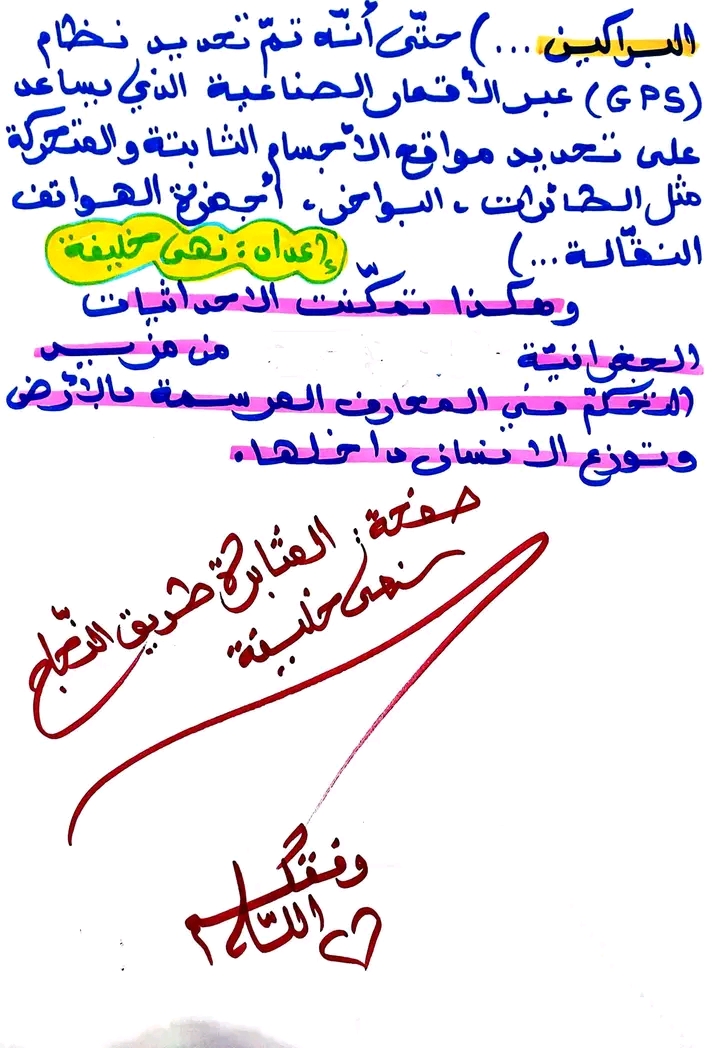 البراكين ...) حتّى أنّه تمّ تحديد نظام
(GPS) عبر الأقمار الصناعية الذي يساعد
على تحديد مواقع الأجسام الثابتة والمتحركة
مثل الطائرات، البواخر، أجهزة الهواتف
النقّالة ...)
إعداد : نهى خليفة
وهكذا تمكّنت الاحداثيات
الجغرافيّة من مزيد
التحكّم في المعارف المرسمة بالأرض
وتوزع الانسان داخلها.
صفحة : المثابرة طريق النّجاح
نهى خليفة
وفقكم
اللّه